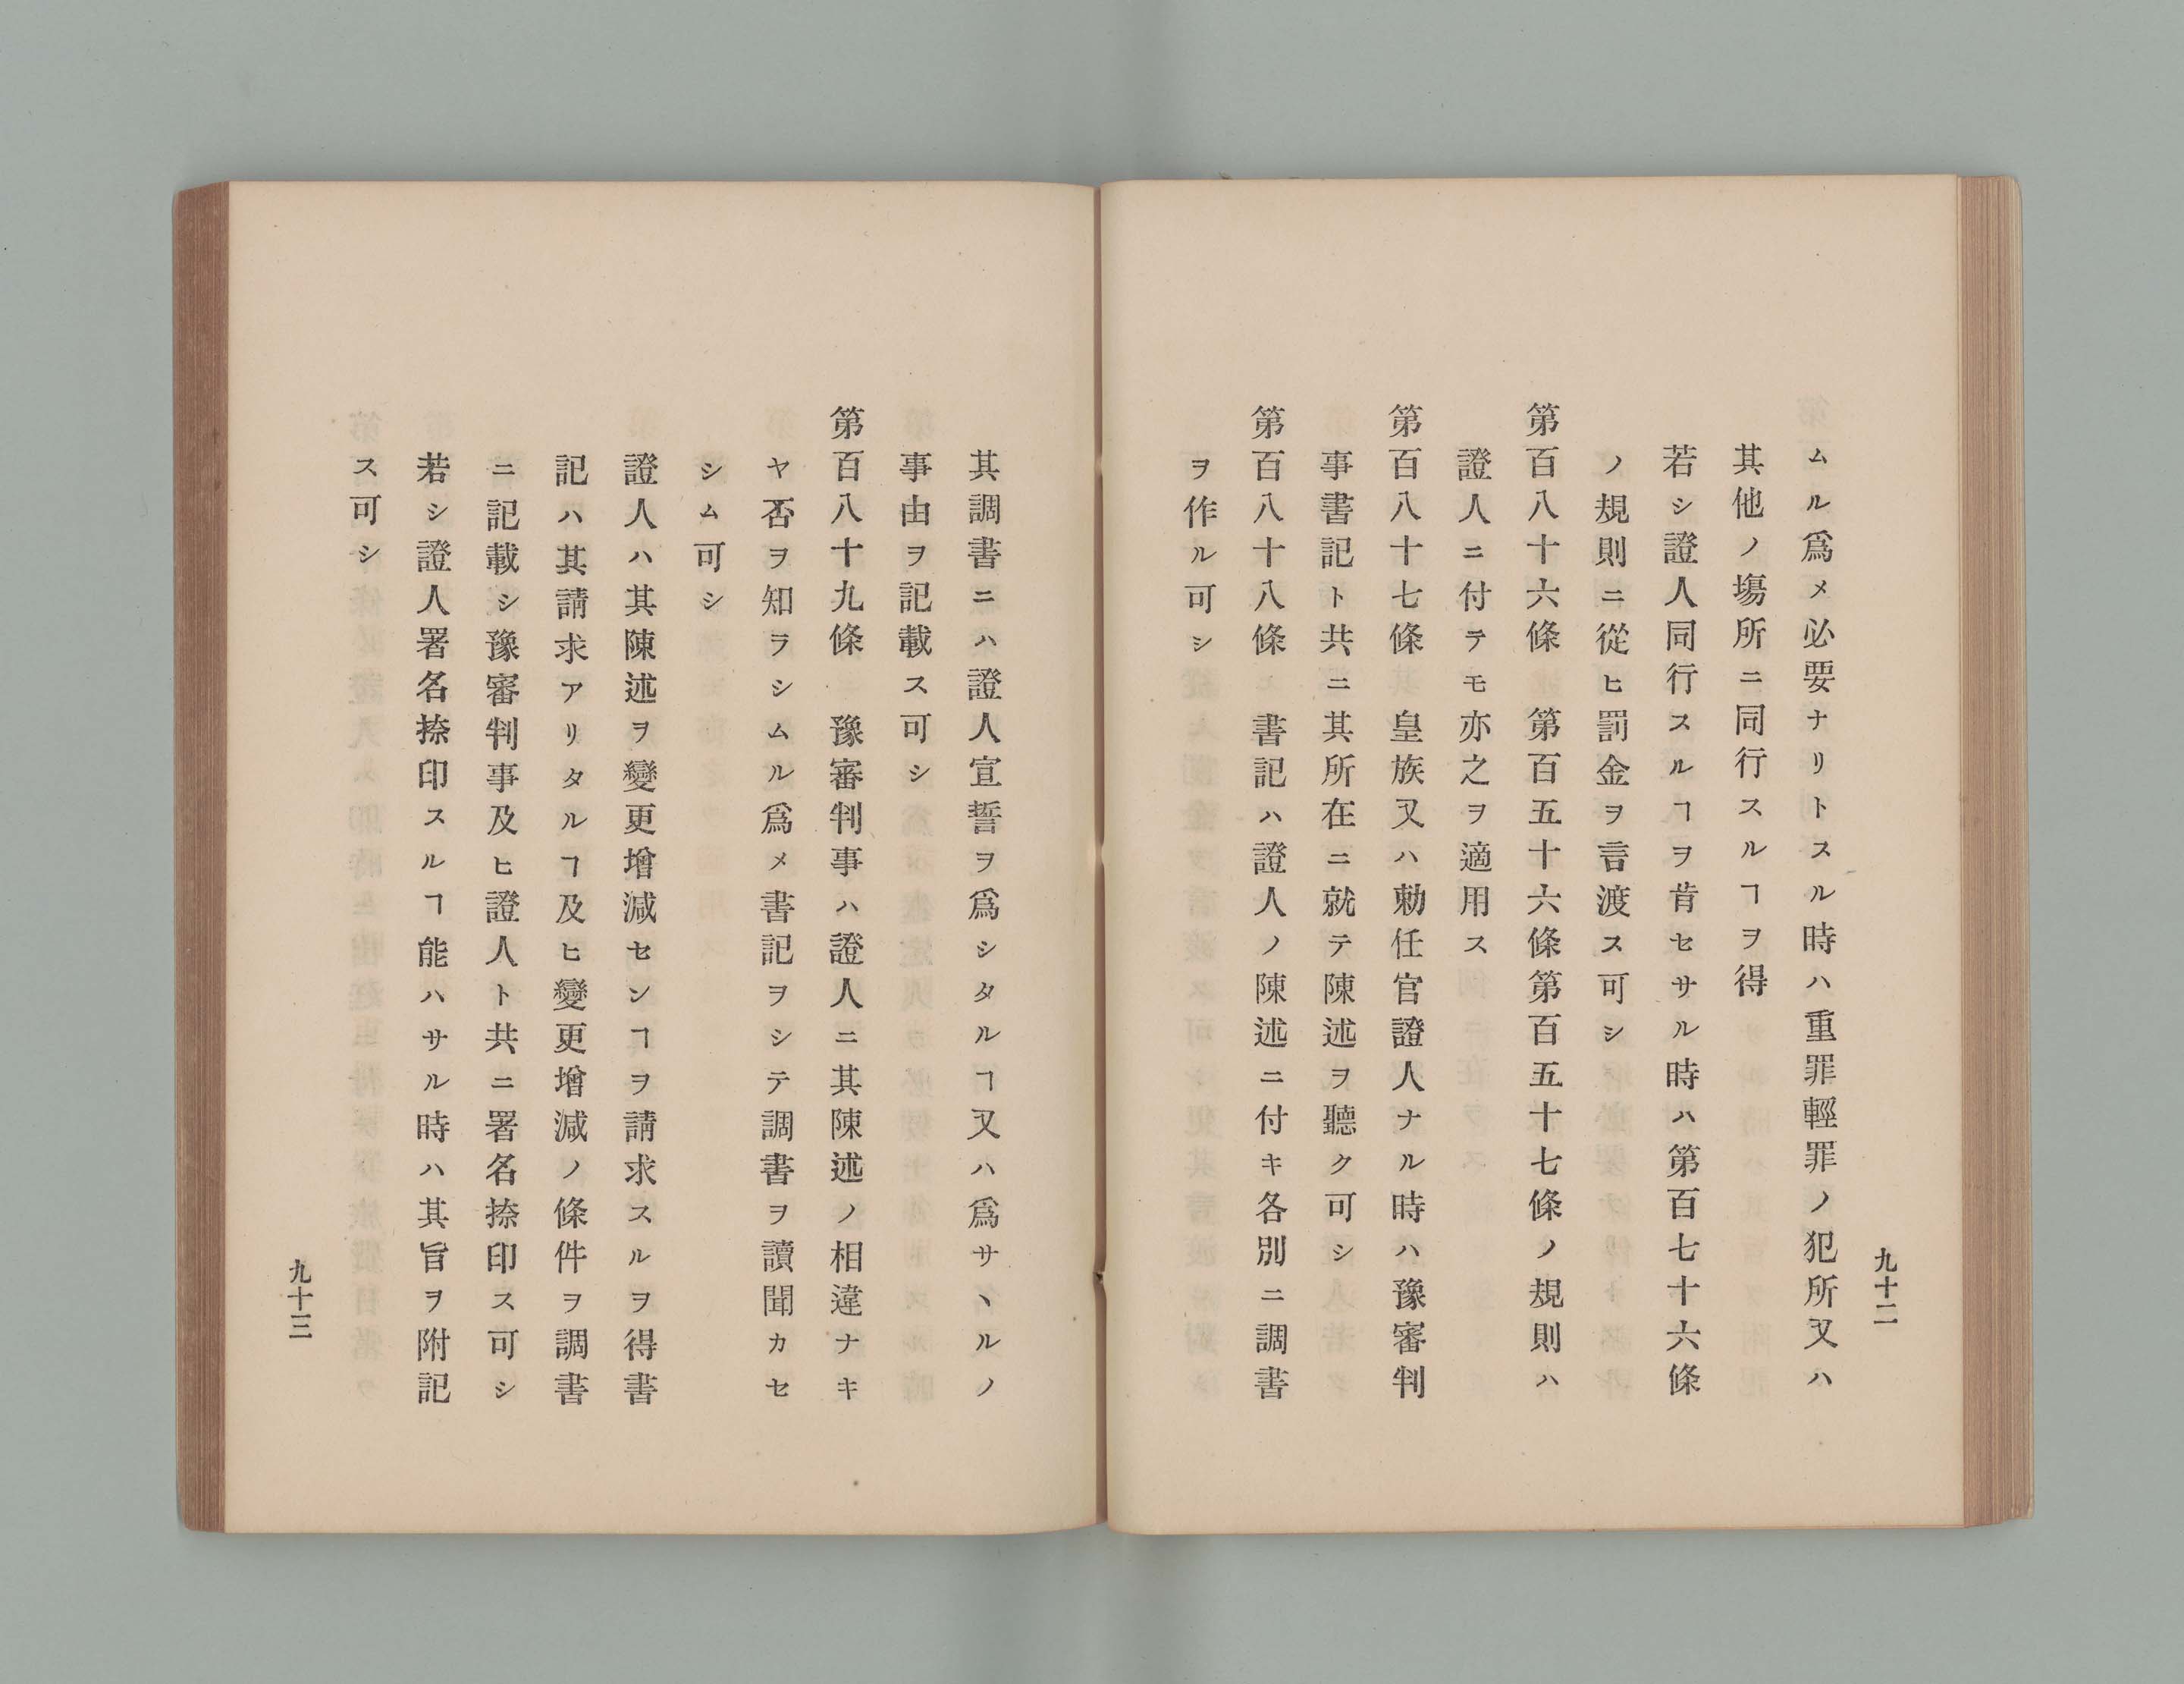 九十二
ムル爲メ必要ナリトスル時ハ重罪輕罪ノ犯所又ハ
其他ノ場所ニ同行スルヿヲ得
若シ證人同行スルヿヲ肯セサル時ハ第百七十六條
ノ規則ニ從ヒ罰金ヲ言渡ス可シ
第百八十六條　第百五十六條第百五十七條ノ規則ハ
證人ニ付テモ亦之ヲ適用ス
第百八十七條　皇族又ハ勅任官證人ナル時ハ豫審判
事書記ト共ニ其所在ニ就テ陳述ヲ聽ク可シ
第百八十八條　書記ハ證人ノ陳述ニ付キ各別ニ調書
ヲ作ル可シ
其調書ニハ證人宣誓ヲ爲シタルヿ又ハ爲サヽルノ
事由ヲ記載ス可シ
第百八十九條　豫審判事ハ證人ニ其陳述ノ相違ナキ
ヤ否ヲ知ラシムル爲メ書記ヲシテ調書ヲ讀聞カセ
シム可シ
證人ハ其陳述ヲ變更增減センヿヲ請求スルヲ得書
記ハ其請求アリタルヿ及ヒ變更增減ノ條件ヲ調書
ニ記載シ豫審判事及ヒ證人ト共ニ署名捺印ス可シ
若シ證人署名捺印スルヿ能ハサル時ハ其旨ヲ附記
ス可シ
九十三